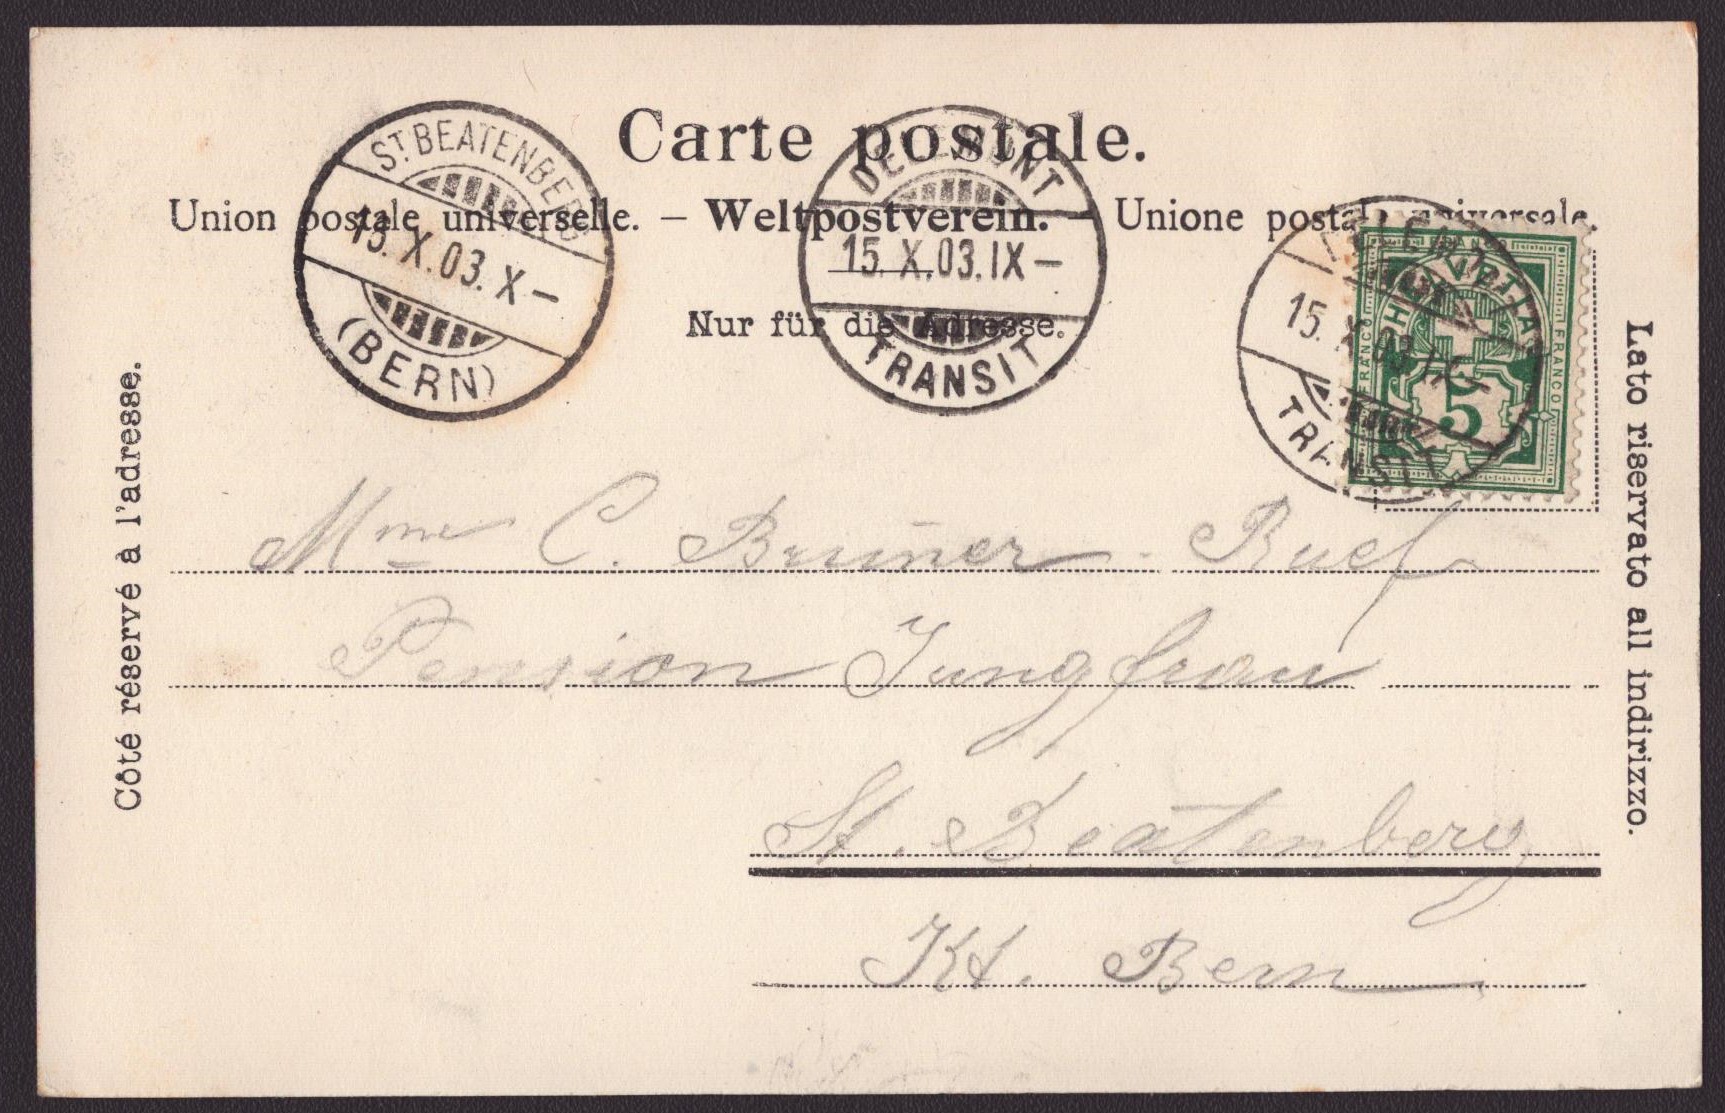 Carte postale.
Union postale universelle. – Weltpostverein. – Unione postale universale.
Nur für die Adresse.
Côté réservé à l'adresse.
Lato riservato all indirizzo.
ST. BEATENBERG
15. X. 03. X –
(BERN)
DELÉMONT
15. X. 03. IX –
TRANSIT
DELÉMONT
15. X. 03. IX –
TRANSIT
HELVETIA
FRANCO
FRANCO
5
Mme C. Bruner - Ruef
Pension Jungfrau
St. Beatenberg
Kt. Bern